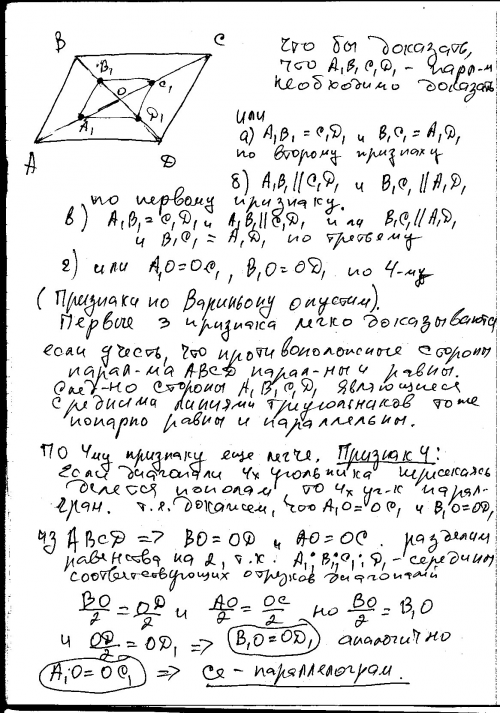 B
C
B₁
C₁
O
A₁
D₁
A
D
Что бы доказать,
что A₁B₁C₁D₁ - парал-м
необходимо доказать
или
а) A₁B₁ = C₁D₁ и B₁C₁ = A₁D₁
по второму признаку
б) A₁B₁ || C₁D₁ и B₁C₁ || A₁D₁
по первому признаку.
в) A₁B₁ = C₁D₁ и A₁B₁ || C₁D₁ или B₁C₁ || A₁D₁
и B₁C₁ = A₁D₁ по третьему
г) или A₁O = OC₁, B₁O = OD₁ по 4-му
(Признаки по Вариньону опустим).
Первые 3 признака легко доказываются
если учесть, что противоположные стороны
парал-ма ABCD парал-ны и равны.
След-но стороны A₁B₁C₁D₁ являющиеся
средними линиями треугольников тоже
попарно равны и параллельны.
По 4му признаку еще легче. Признак 4:
Если диагонали 4х угольника пересекаясь
делятся пополам, то 4х уг-к парал-
грам. т.е. докажем, что A₁O = OC₁ и B₁O = OD₁
из ABCD => BO = OD и AO = OC. разделим
равенства на 2, т.к. A₁; B₁; C₁; D₁ - середины
соответствующих отрезков диагоналей
BO/2 = OD/2 и AO/2 = OC/2 но BO/2 = B₁O
и OD/2 = OD₁ => B₁O = OD₁ аналогично
A₁O = OC₁ => - параллелограм.